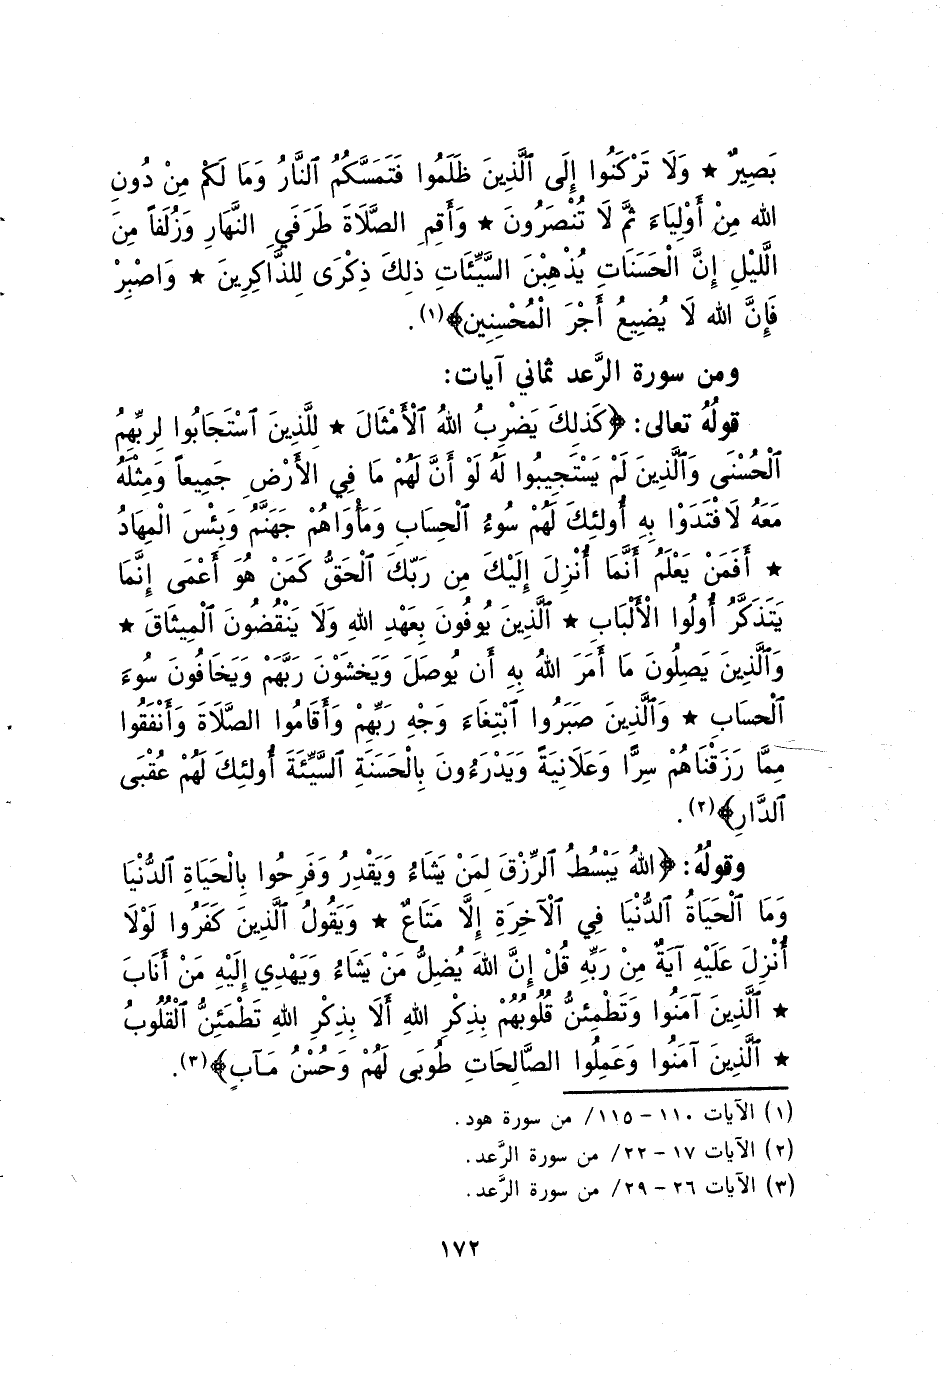 بَصِيرٌ ★ وَلَا تَرْكَنُوا إِلَى ٱلَّذِينَ ظَلَمُوا فَتَمَسَّكُمُ ٱلنَّارُ وَمَا لَكُمْ مِنْ دُونِ
الله مِنْ أَوْلِيَاءَ ثُمَّ لَا تُنْصَرُونَ ★ وَأَقِمِ الصَّلَاةَ طَرَفَيِ النَّهَارِ وَزُلَفاً مِنَ
الَّليْلِ إِنَّ الْحَسَنَاتِ يُذْهِبْنَ السَّيِّئَاتِ ذلِكَ ذِكْرَى لِلذَّاكِرِينَ ★ وَاصْبِرْ
فَإِنَّ الله لَا يُضِيعُ أَجْرَ الْمُحْسِنِين﴾(١).
ومن سورة الرَّعد ثماني آيات:
قولُهُ تعالى: ﴿كَذلِكَ يَضْرِبُ اللهُ ٱلْأَمْثَالَ ★ لِلَّذِينَ ٱسْتَجَابُوا لِرَبِّهِمُ
ٱلْحُسْنَى وَٱلَّذِينَ لَمْ يَسْتَجِيبُوا لَهُ لَوْ أَنَّ لَهُمْ مَا فِي الأَرْضِ جَمِيعاً وَمِثْلَهُ
مَعَهُ لَافْتَدَوْا بِهِ أُولئِكَ لَهُمْ سُوءُ ٱلْحِسَابِ وَمَأْوَاهُمْ جَهَنَّمُ وَبِئْسَ الْمِهَادُ
★ أَفَمَنْ يَعْلَمُ أَنَّمَا أُنْزِلَ إِلَيْكَ مِن رَبِّكَ ٱلْحَقُّ كَمَنْ هُوَ أَعْمَى إِنَّمَا
يَتَذَكَّرُ أُولُوا الْأَلْبَابِ ★ ٱلَّذِينَ يُوفُونَ بِعَهْدِ اللهِ وَلَا يَنْقُضُونَ ٱلْمِيثَاقَ ★
وَٱلَّذِينَ يَصِلُونَ مَا أَمَرَ اللهُ بِهِ أَن يُوصَلَ وَيَخشَوْنَ رَبَّهَمْ وَيَخَافُونَ سُوءَ
ٱلْحسَابِ ★ وَٱلَّذِينَ صَبَرُوا ٱبْتِغَاءَ وَجْهِ رَبِّهِمْ وَأَقَامُوا الصَّلَاةَ وَأَنْفَقُوا
مِمَّا رَزَقْنَاهُمْ سِرًّا وَعَلَانِيَةً وَيَدْرَءُونَ بِالْحَسَنَةِ ٱلسَّيِّئَةَ أُولئِكَ لَهُمْ عُقْبَى
ٱلدَّارِ﴾(٢).
وقولُهُ: ﴿اللهُ يَبْسُطُ ٱلرِّزْقَ لِمَنْ يَشَاءُ وَيَقْدِرُ وَفَرِحُوا بِالْحَيَاةِ ٱلدُّنْيَا
وَمَا ٱلْحَيَاةُ ٱلدُّنْيَا فِي ٱلْآخِرَةِ إِلَّا مَتَاعٌ ★ وَيَقُولُ ٱلَّذِينَ كَفَرُوا لَوْلَا
أُنْزِلَ عَلَيْهِ آيَةٌ مِنْ رَبِّهِ قُلْ إِنَّ اللهَ يُضِلُّ مَنْ يَشَاءُ وَيَهْدِي إِلَيْهِ مَنْ أَنَابَ
★ ٱلَّذِينَ آمَنُوا وَتَطْمَئِنُّ قُلُوبُهُمْ بِذِكْرِ اللهِ أَلَا بِذِكْرِ اللهِ تَطْمَئِنُّ ٱلْقُلُوبُ
★ ٱلَّذِينَ آمَنُوا وَعَمِلُوا الصَّالِحَاتِ طُوبَى لَهُمْ وَحُسْنُ مَآبٍ﴾(٣).
(١) الآيات ١١٠ - ١١٥/ من سورة هود.
(٢) الآيات ١٧ - ٢٢/ من سورة الرَّعد.
(٣) الآيات ٢٦ - ٢٩/ من سورة الرَّعد.
١٧٢